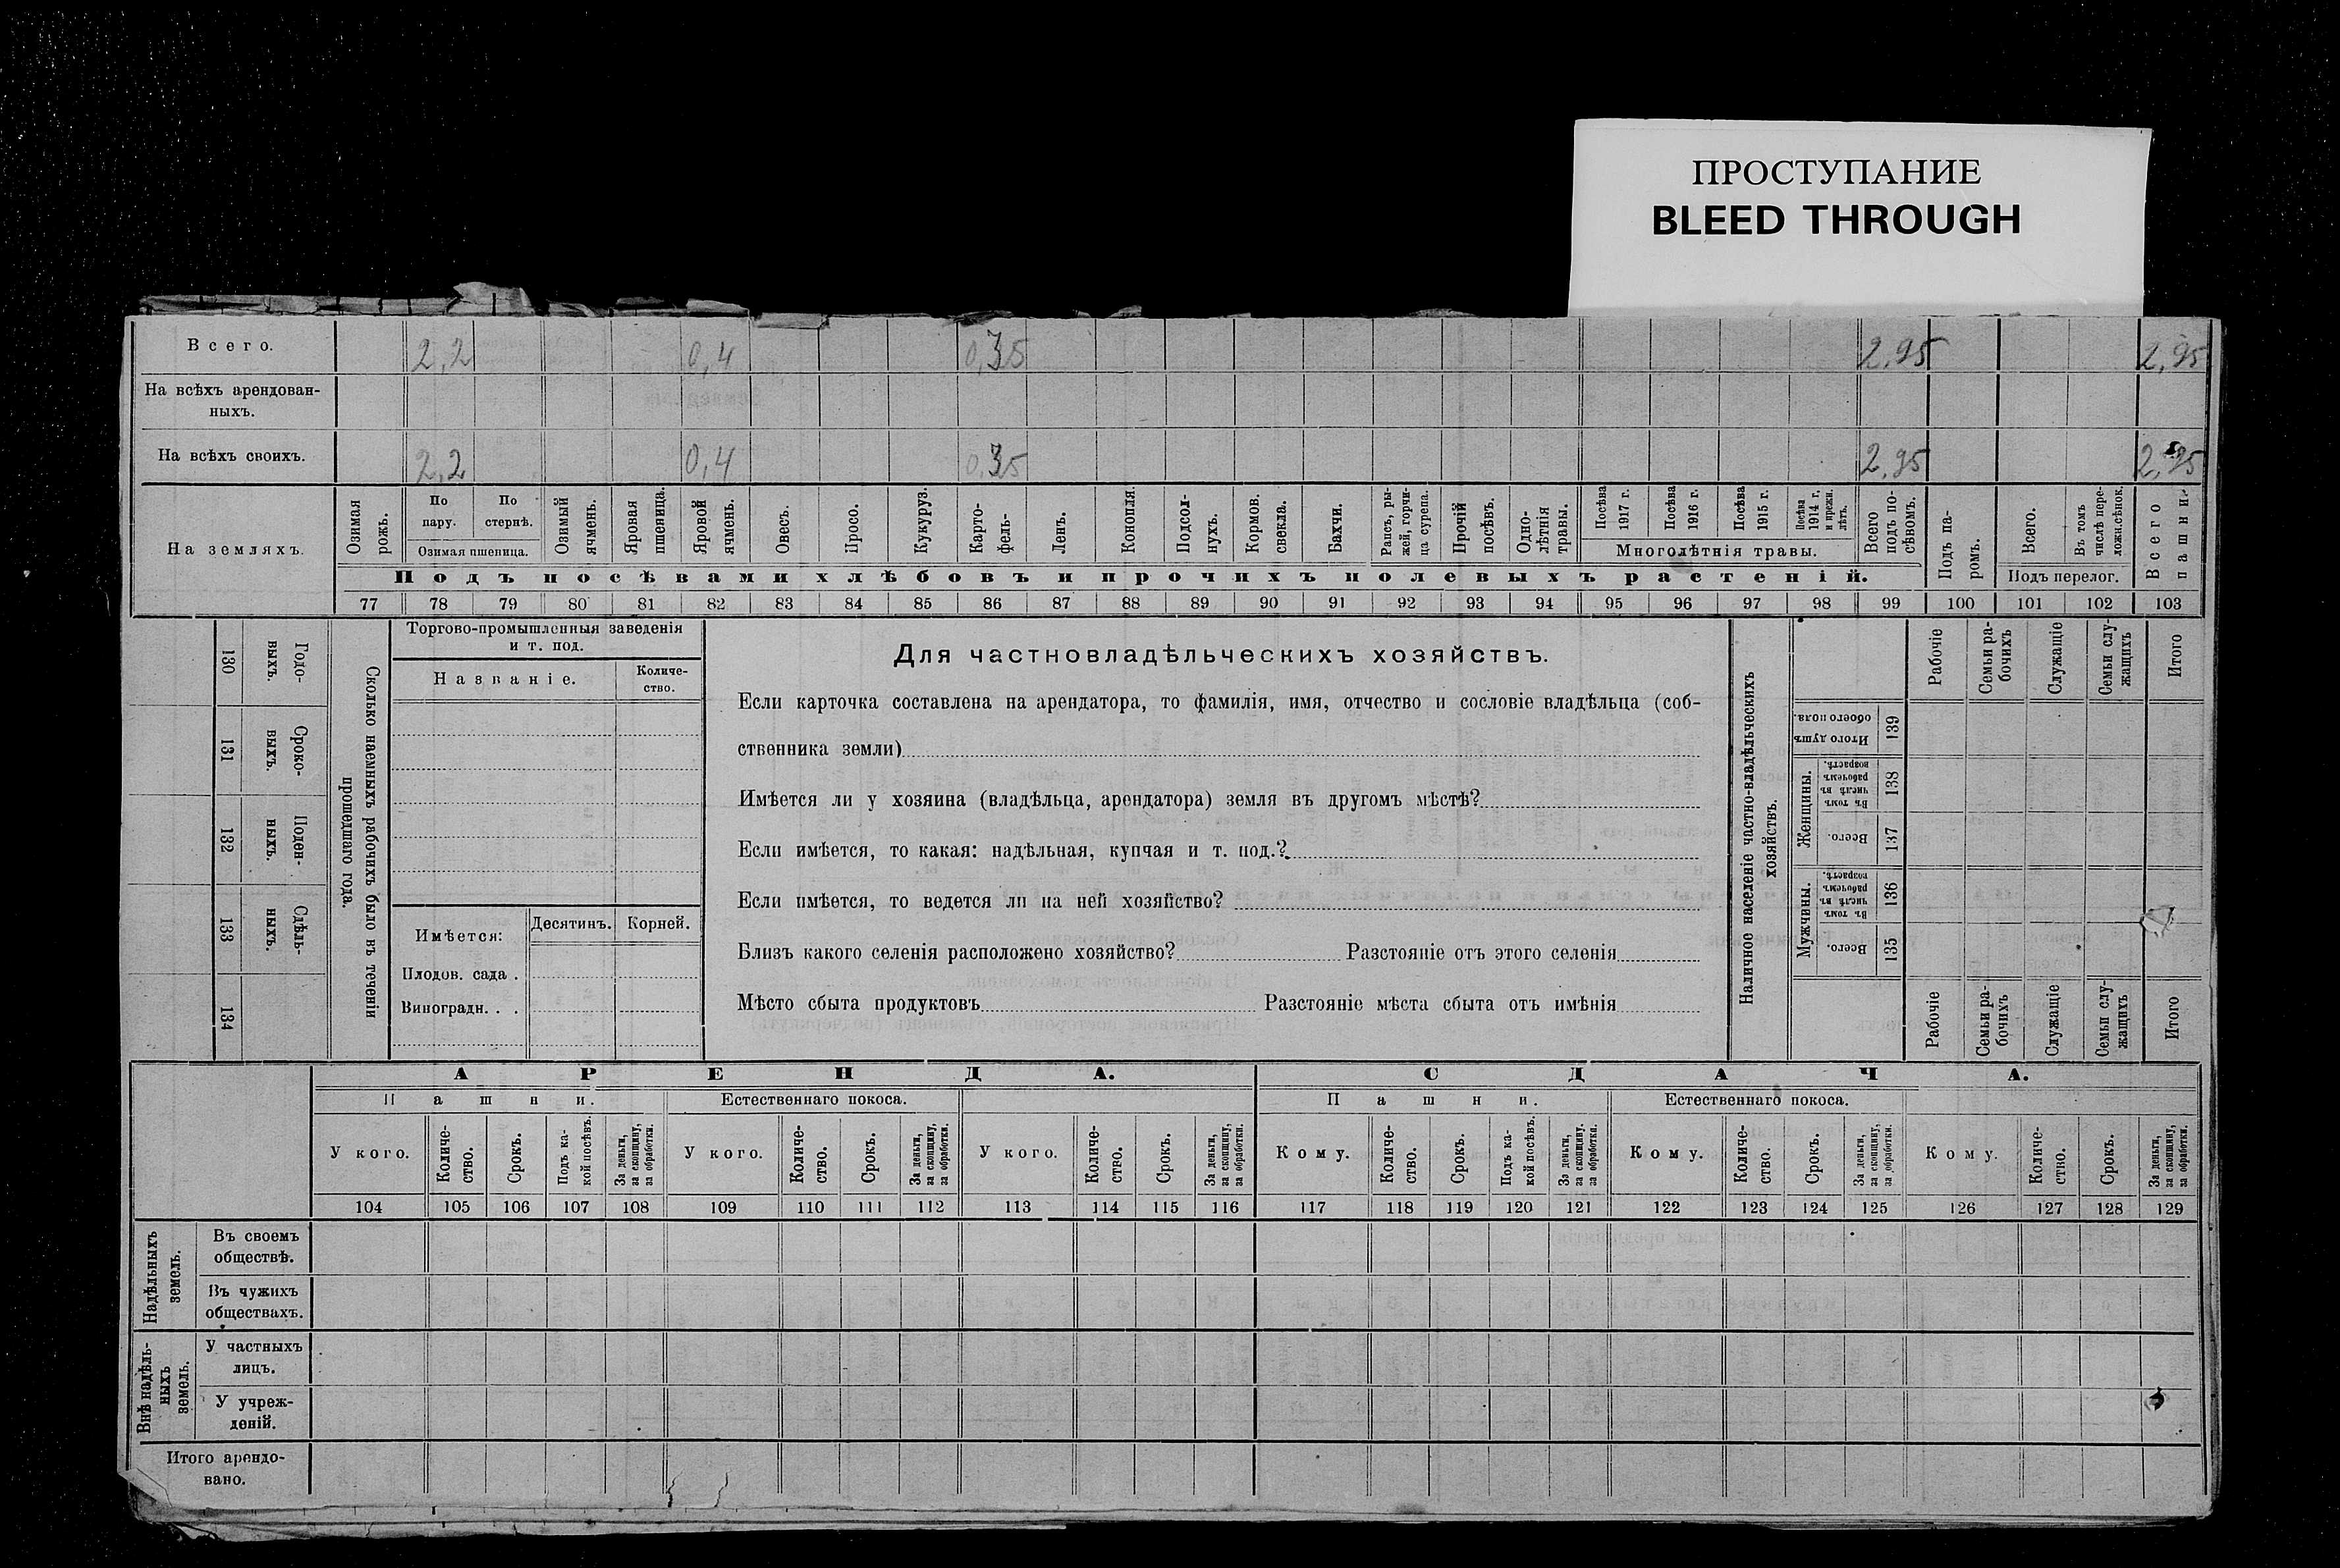 ПРОСТУПАНИЕ
BLEED THROUGH
Всего. 2,2 0,4 0,35 2,95 2,95
На всѣхъ арендован-
ныхъ.
На всѣхъ своихъ. 2,2 0,4 0,35 2,95 2,95
На земляхъ.
Озимая рожь.
По пару.
По стернѣ.
Озимая пшеница.
Озимый ячмень.
Яровая пшеница.
Яровой ячмень.
Овесъ.
Просо.
Кукуруз.
Карто-
фель-
Ленъ.
Конопля.
Подсол-
нухъ.
Кормов. свекла.
Бахчи.
Рапсъ, ры-
жей, горчи-
ца сурепа.
Прочій посѣвъ.
Одно-
лѣтнія травы.
Посѣва 1917 г.
Посѣва 1916 г.
Посѣва 1915 г.
Посѣва 1914 г. и прежн. лѣтъ.
Многолѣтнія травы.
Всего подъ по-
сѣвомъ.
Подъ посѣвами хлѣбовъ и прочихъ полевыхъ растеній.
Подъ па-
ромъ.
Всего.
Въ томъ числѣ пере-
лож.сѣнок.
Подъ перелог.
Всего пашни.
77 78 79 80 81 82 83 84 85 86 87 88 89 90 91 92 93 94 95 96 97 98 99 100 101 102 103
130 Годо-
выхъ.
131 Сроко-
выхъ.
132 Поден-
ныхъ.
133 Сдѣль-
ныхъ.
134
Сколько наемныхъ рабочихъ было въ теченіи
прошедшаго года.
Торгово-промышленныя заведенія
и т. под.
Названіе.
Количе-
ство.
Имѣется:
Десятинъ.
Корней.
Плодов. сада .
Виноградн. . .
Для частновладѣльческихъ хозяйствъ.
Если карточка составлена на арендатора, то фамилія, имя, отчество и сословіе владѣльца (соб-
ственника земли)
Имѣется ли у хозяина (владѣльца, арендатора) земля въ другомъ мѣстѣ?
Если имѣется, то какая: надѣльная, купчая и т. под.?
Если имѣется, то ведется ли на ней хозяйство?
Близъ какого селенія расположено хозяйство? Разстояніе отъ этого селенія
Мѣсто сбыта продуктовъ Разстояніе мѣста сбыта отъ имѣнія
Наличное населеніе частно-владѣльческихъ
хозяйствъ.
Рабочіе
Семьи ра-
бочихъ
Служащіе
Семьи слу-
жащихъ
Итого
Итого душъ обоего пола. 139
Женщины.
Въ томъ числѣ въ рабочемъ возрастѣ. 138
Всего. 137
Мужчины.
Въ томъ числѣ въ рабочемъ возрастѣ. 136
Всего. 135
Рабочіе
Семьи ра-
бочихъ
Служащіе
Семьи слу-
жащихъ
Итого
АРЕНДА. СДАЧА.
Пашни. Естественнаго покоса. Пашни. Естественнаго покоса.
У кого.
Количе-
ство.
Срокъ.
Подъ ка-
кой посѣвъ.
За деньги,
за скопщину,
за обработки.
У кого.
Количе-
ство.
Срокъ.
За деньги,
за скопщину,
за обработки.
У кого.
Количе-
ство.
Срокъ.
За деньги,
за скопщину,
за обработки.
Кому.
Количе-
ство.
Срокъ.
Подъ ка-
кой посѣвъ.
За деньги,
за скопщину,
за обработки.
Кому.
Количе-
ство.
Срокъ.
За деньги,
за скопщину,
за обработки.
Кому.
Количе-
ство.
Срокъ.
За деньги,
за скопщину,
за обработки.
104 105 106 107 108 109 110 111 112 113 114 115 116 117 118 119 120 121 122 123 124 125 126 127 128 129
Надѣльныхъ
земель.
Въ своемъ
обществѣ.
Въ чужихъ
обществахъ.
Внѣ надѣль-
ныхъ
земель.
У частныхъ
лицъ.
У учреж-
деній.
Итого арендо-
вано.